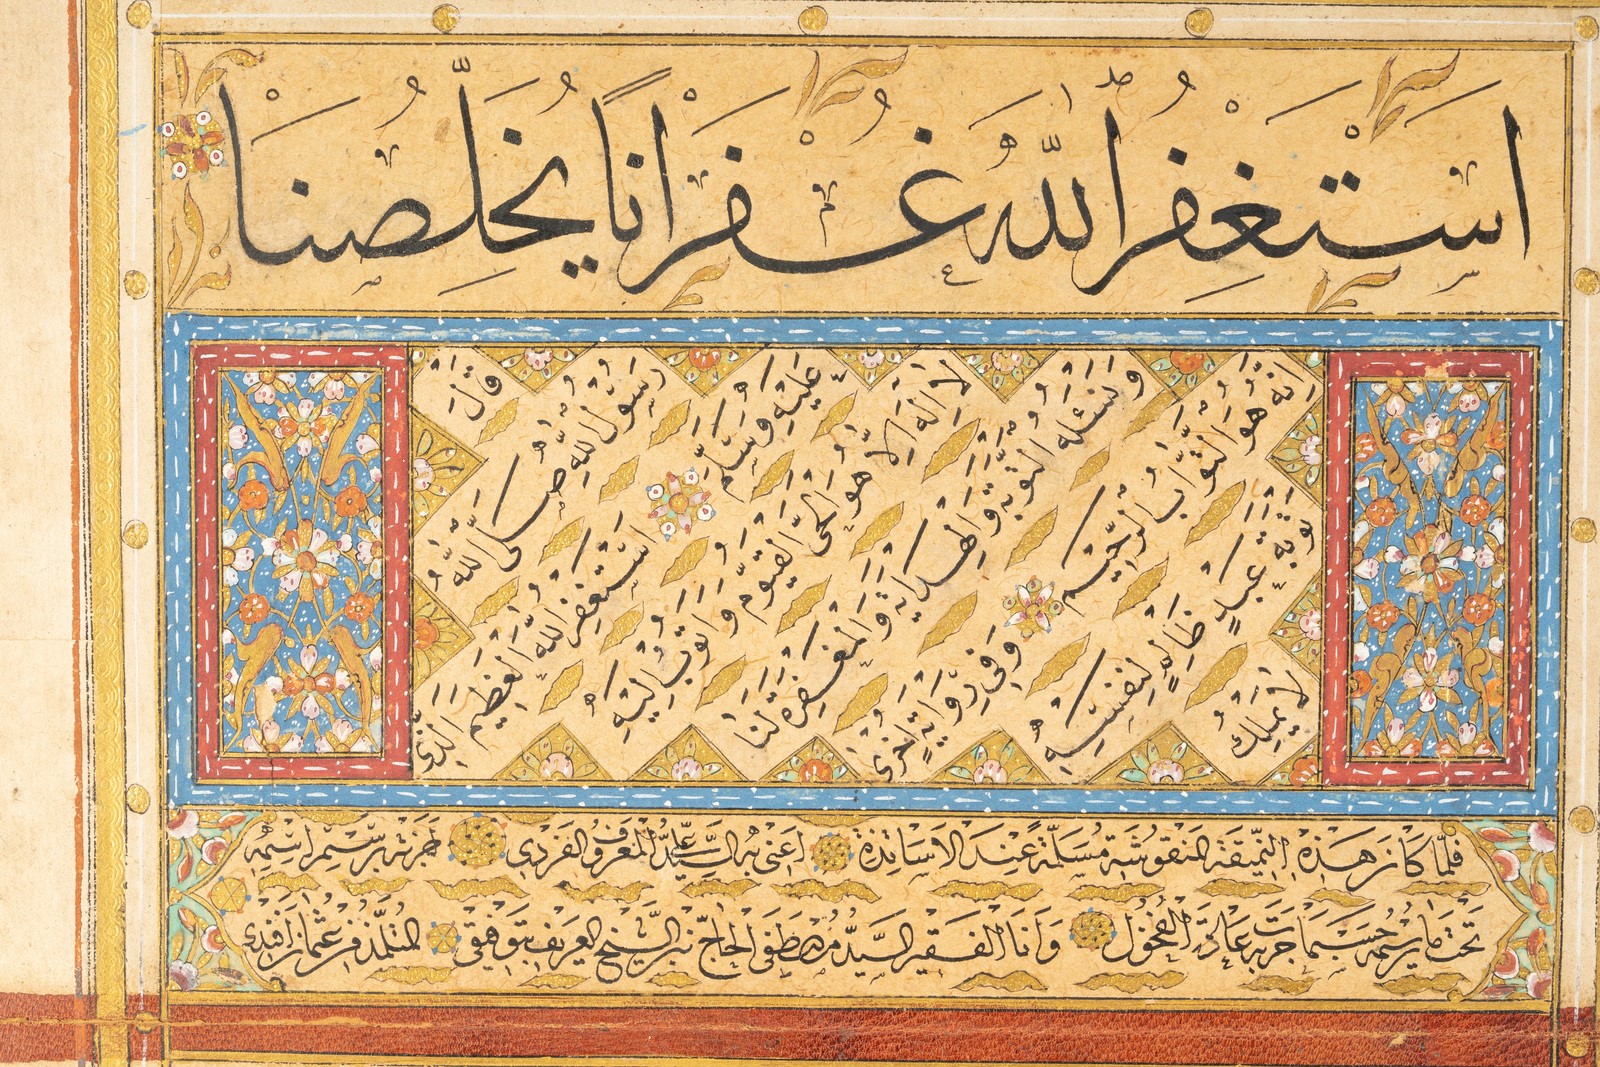 اَسْتَغْفِرُ اللهَ غُفْرَانًا يُخَلِّصُنَا
قَالَ
رَسُولُ اللهِ صَلَّى اللهُ
عَلَيْهِ وَسَلَّمَ
اَسْتَغْفِرُ اللهَ الْعَظِيمَ الَّذِي
لَا اِلٰهَ اِلَّا هُوَ الْحَيَّ الْقَيُّومَ وَاَتُوبُ اِلَيْهِ
وَنَسْئَلُهُ التَّوْبَةَ وَالْهِدَايَةَ وَالْمَغْفِرَةَ لَنَا
اِنَّهُ هُوَ التَّوَّابُ الرَّحِيمُ
وَفِي رِوَايَةٍ اُخْرٰى
تَوْبَةَ عَبْدٍ ظَالِمٍ لِنَفْسِهِ
لَا يَمْلِكُ
فلما كانت هذه النميقة المنقوشة مسلمة عند الاساتذة اعنى به السيد على المعروف الفردى
تحت ما رسمه حسبما جرت به عادة الفحول وانا الفقير السيد مصطفى الحاج بتوفيق المتلمذ من عثمان افندى